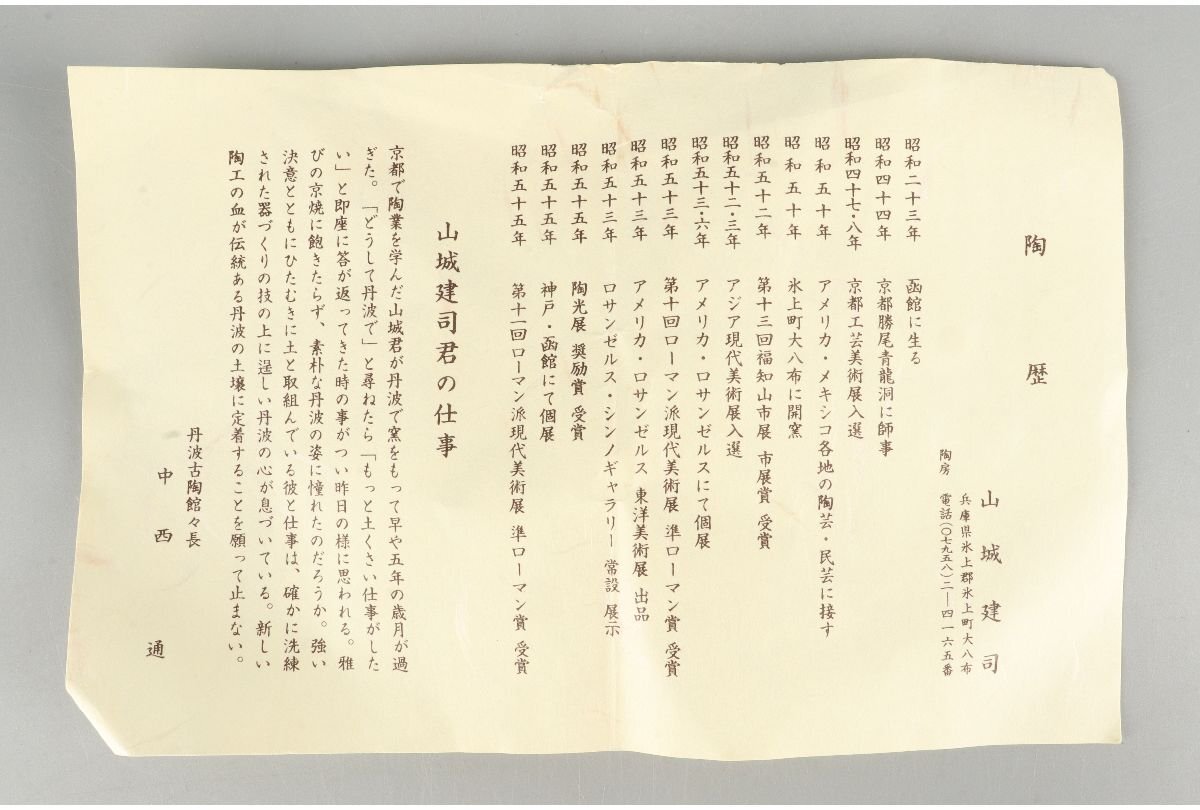 陶歴
山城建司
兵庫県氷上郡氷上町大八布
陶房 電話(〇七九五八)二―四一六五番
昭和二十三年 函館に生る
昭和四十四年 京都勝尾青龍洞に師事
昭和四十七・八年 京都工芸美術展入選
昭和五十年 アメリカ・メキシコ各地の陶芸・民芸に接す
昭和五十年 氷上町大八布に開窯
昭和五十二年 第十三回福知山市展 市展賞 受賞
昭和五十二・三年 アジア現代美術展入選
昭和五十三・六年 アメリカ・ロサンゼルスにて個展
昭和五十三年 第十回ローマン派現代美術展 準ローマン賞 受賞
昭和五十三年 アメリカ・ロサンゼルス 東洋美術展 出品
昭和五十三年 ロサンゼルス・シンノギャラリー 常設 展示
昭和五十五年 陶光展 奨励賞 受賞
昭和五十五年 神戸・函館にて個展
昭和五十五年 第十二回ローマン派現代美術展 準ローマン賞 受賞
山城建司君の仕事
京都で陶業を学んだ山城君が丹波で窯をもって早や五年の歳月が過
ぎた。「どうして丹波で」と尋ねたら「もっと土くさい仕事がした
い」と即座に答が返ってきた時の事がつい昨日の様に思われる。雅
びの京焼に飽きたらず、素朴な丹波の姿に憧れたのだろうか。強い
決意とともにひたむきに土と取組んでいる彼と仕事は、確かに洗練
された器づくりの技の上に逞しい丹波の心が息づいている。新しい
陶工の血が伝統ある丹波の土壌に定着することを願って止まない。
丹波古陶館々長
中西通